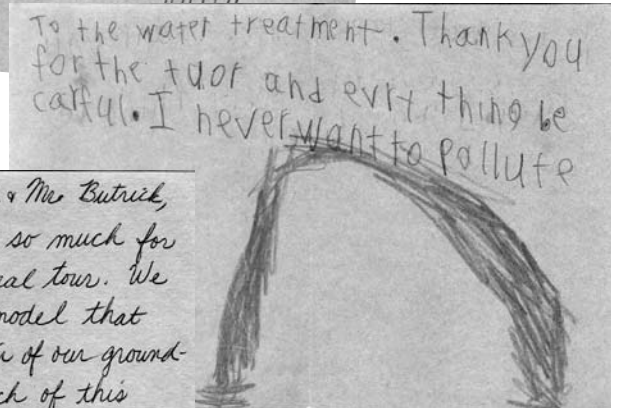 To the water treatment. Thank you
for the tuor and evry thing be
carful. I never want to pollute
& Mr. Butrick,
so much for
tour. We
model that
of our ground-
of this